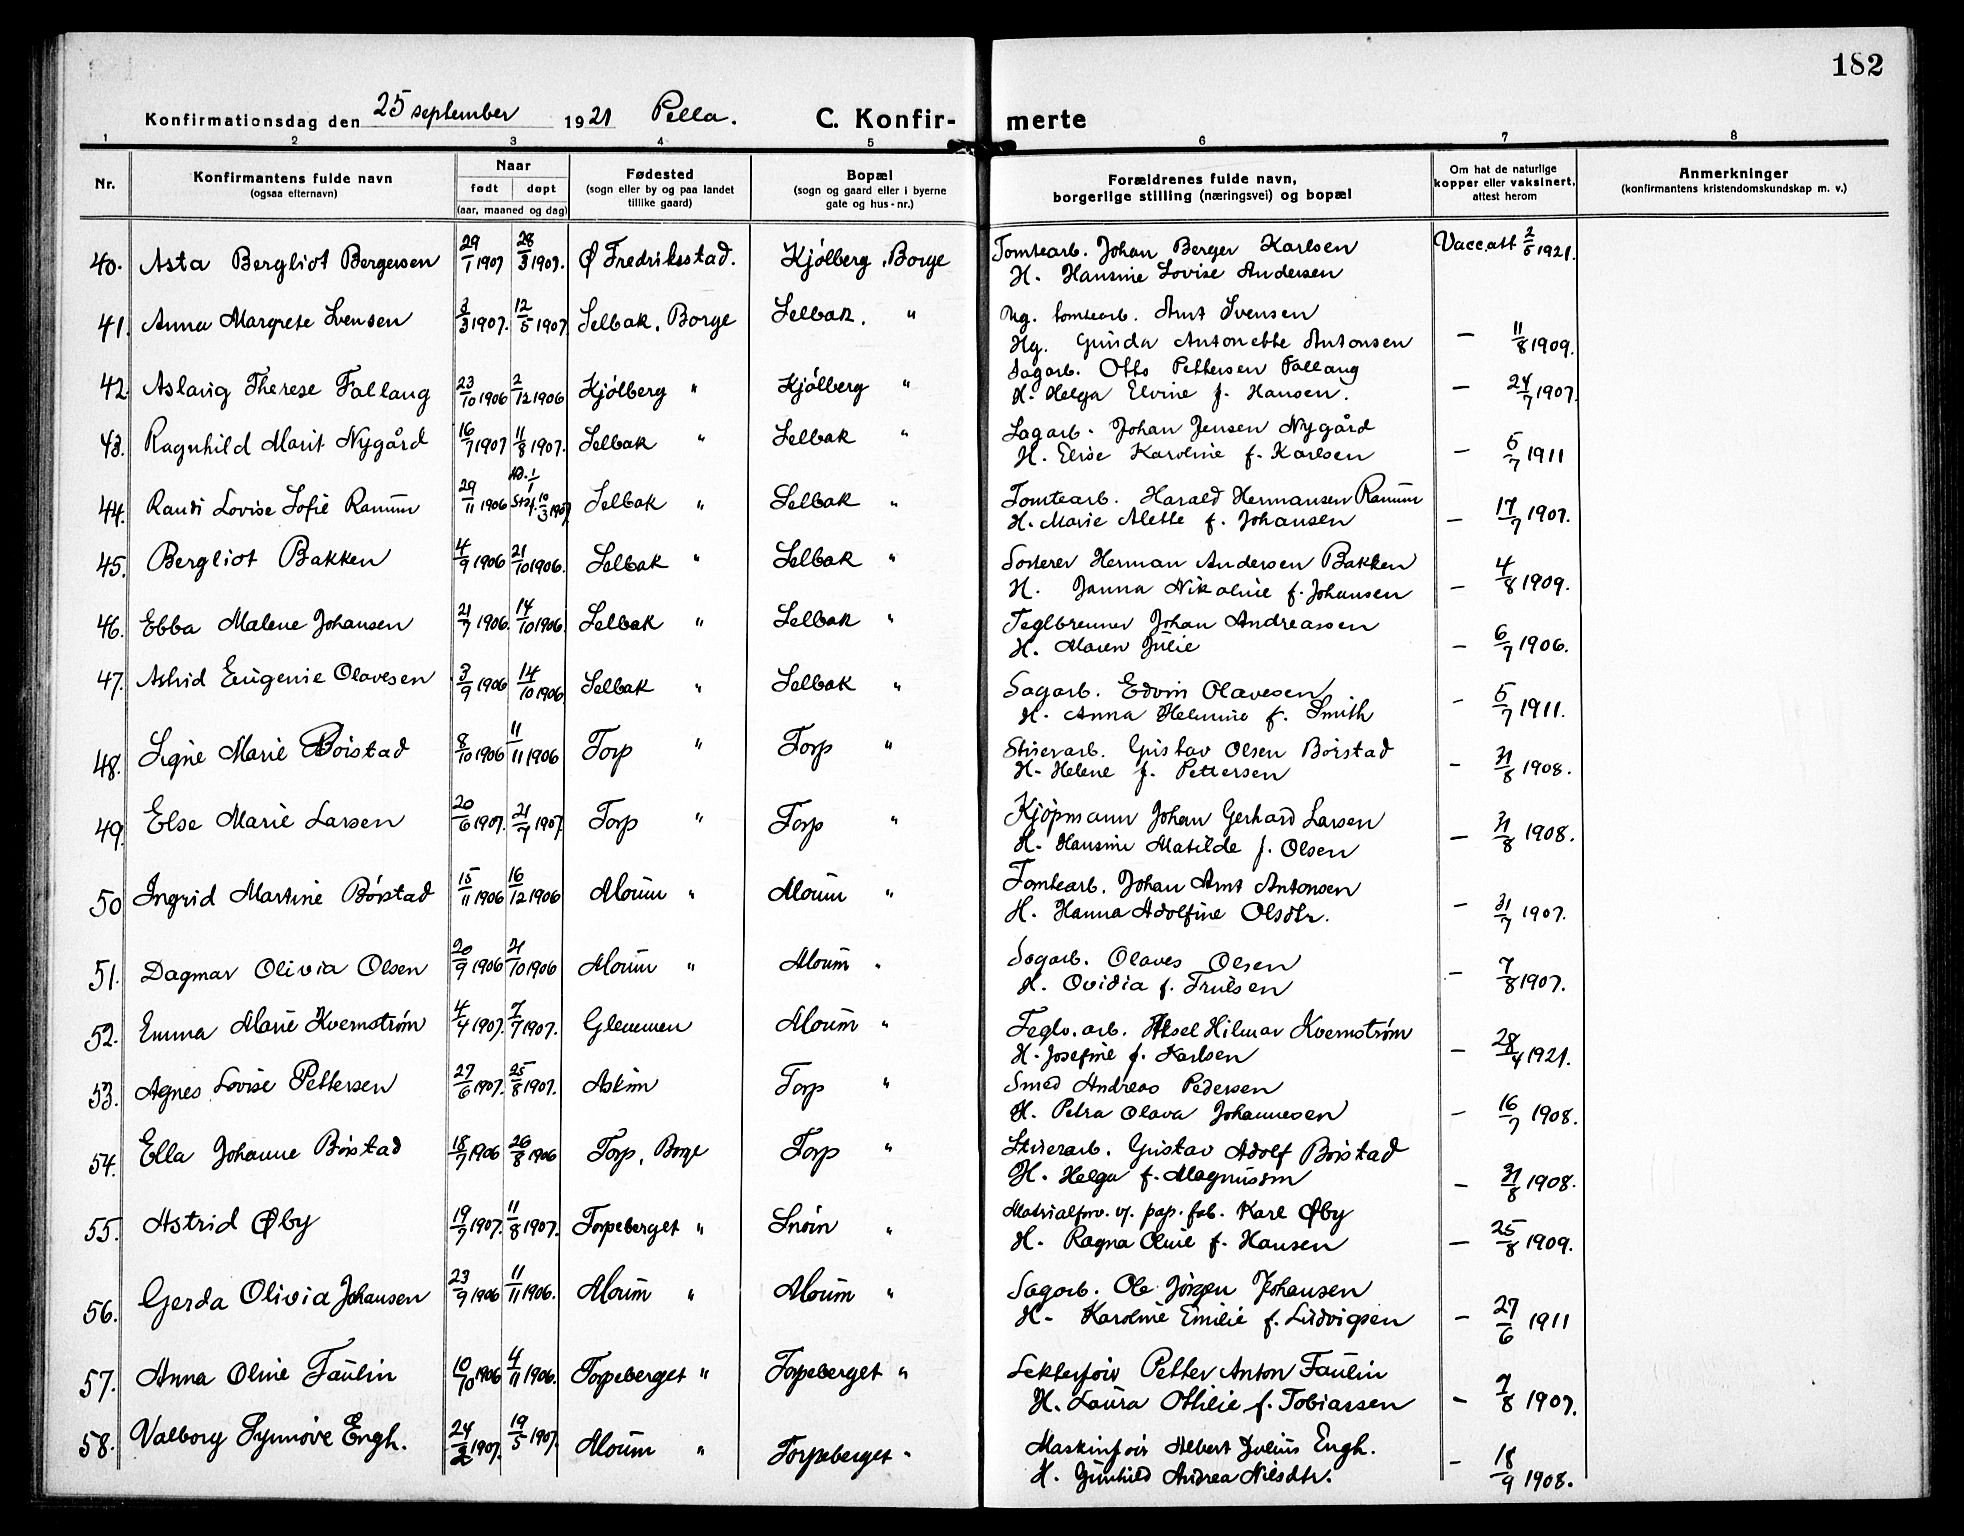 182
Konfirmationsdag den 25 september 1921 Pella. C. Konfirmerte
1 2 3 4 5 6 7 8
Nr. Konfirmantens fulde navn (ogsaa efternavn) Naar født døpt (aar, maaned og dag) Fødested (sogn eller by og paa landet tillike gaard) Bopæl (sogn og gaard eller i byerne gate og hus-nr.) Forældrenes fulde navn, borgerlige stilling (næringsvei) og bopæl Om hat de naturlige kopper eller vaksinert, attest herom Anmerkninger (konfirmantens kristendomskundskap m. v.)
40. Asta Bergliot Bergersen 29/1 1907 28/3 1907. Ø Fredriksstad. Kjølberg, Borge Tomtearb. Johan Berger Karlsen Vacc. att 2/5 1921.
H. Hansine Lovise Andersen
41. Anna Margrete Svensen 3/3 1907. 12/5 1907 Selbak, Borge Selbak. " Ug. tomtearb. Arnt Svensen
Hg. Gunda Antonette Antonsen — 11/8 1909.
42. Aslaug Therese Fallang 23/10 1906 2/12 1906 Kjølberg " Kjølberg " Sagarb. Otto Pettersen Fallang
H. Helga Elvine f. Hansen. — 24/7 1907.
43. Ragnhild Marit Nygård 16/7 1907 11/8 1907. Selbak " Selbak " Sagarb. Johan Jensen Nygård
H. Elise Karoline f. Karlsen — 5/7 1911
44. Randi Lovise Sofie Ramum 29/11 1906 1/1 10/3 1907 Selbak " Selbak " Tomtearb. Harald Hermansen Ramum
H. Marie Alette f. Johansen — 17/7 1907.
45. Bergliot Bakken 4/9 1906 21/10 1906. Selbak " Selbak " Sorterer Herman Andersen Bakken
H. Janna Nikoline f. Johansen — 4/8 1909.
46. Ebba Malene Johansen 21/7 1906. 14/10 1906. Selbak " Selbak " Teglbrenner Johan Andreassen
H. Maren Julie — 6/7 1906.
47. Astrid Eugenie Olavesen 3/9 1906 14/10 1906 Selbak " Selbak " Sagarb. Edvin Olavesen
H. Anna Helmine f. Smith — 5/7 1911.
48. Signe Marie Børstad 8/10 1906 11/11 1906 Torp " Torp " Stuerarb. Gustav Olsen Børstad
H. Helene f. Pettersen — 31/8 1908.
49. Else Marie Larsen 20/6 1907. 21/7 1907. Torp " Torp " Kjøpmann Johan Gerhard Larsen
H. Hansine Matilde f. Olsen — 31/8 1908.
50 Ingrid Martine Børstad 15/11 1906 16/12 1906 Moum " Moum " Tomtearb. Johan Arnt Antonsen
H. Hanna Adolfine Olsdtr. — 31/7 1907.
51. Dagmar Olivia Olsen 20/9 1906 21/10 1906 Moum " Moum " Sagarb. Olaves Olsen
H. Ovidia f. Trulsen — 7/8 1907.
52. Emma Marie Kvernstrøm 4/4 1907. 7/7 1907. Glemmen Moum " Teglv. arb. Aksel Hilmar Kvernstrøm
H. Josefine f. Karlsen — 28/4 1921.
53. Agnes Lovise Pettersen 27/6 1907. 25/8 1907. Askim Torp " Smed Andreas Pedersen
H. Petra Olava Johannesen — 16/7 1908.
54. Ella Johanne Børstad 18/7 1906 26/8 1906 Torp, Borge Torp " Stuerarb. Gustav Adolf Børstad
H. Helga f. Magnussen — 31/8 1908.
55. Astrid Øby 19/7 1907. 11/8 1907. Torpeberget " Snøin " Matrialforv. v. pap. fab. Karl Øby
H. Ragna Oline f. Hansen — 25/8 1909.
56. Gerda Olivia Johansen 23/9 1906 11/11 1906. Moum " Moum " Sagarb. Ole Jørgen Johansen
H. Karoline Emilie f. Ludvigsen — 27/6 1911
57. Anna Oline Faulin 10/10 1906 4/11 1906. Torpeberget " Torpeberget " Lekterfør Petter Anton Faulin
H. Laura Othilie f. Tobiassen — 7/8 1907.
58. Valborg Synnøve Engh. 24/2 1907. 19/5 1907. Moum " Torpeberget " Maskinfør Albert Julius Engh.
H. Gunhild Andrea Nilsdtr. — 18/9 1908.